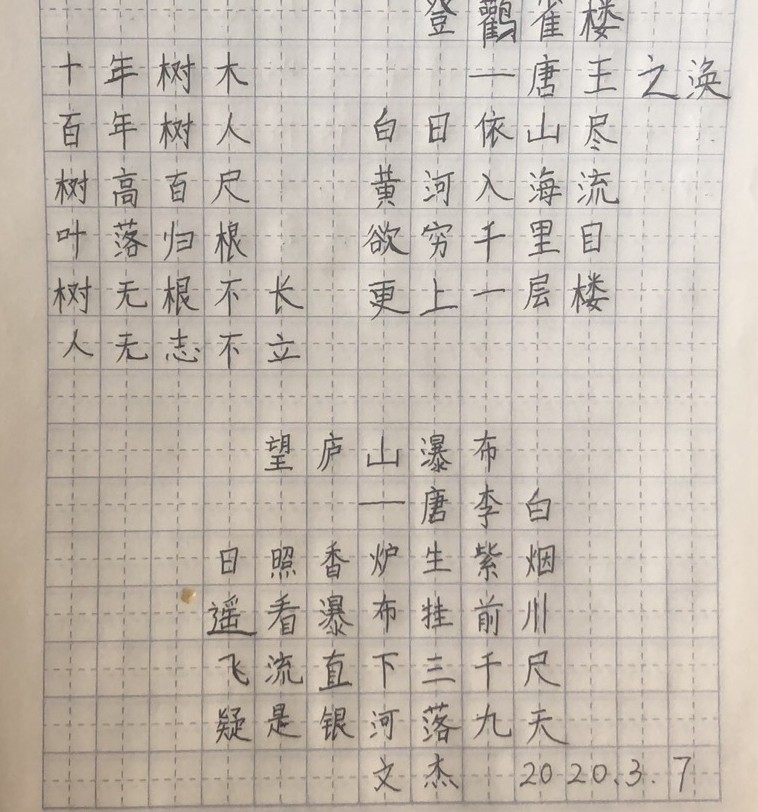 登鹳雀楼
十年树木
百年树人
树高百尺
叶落归根
树无根不长
人无志不立
—唐王之涣
白日依山尽
黄河入海流
欲穷千里目
更上一层楼
望庐山瀑布
—唐李白
日照香炉生紫烟
遥看瀑布挂前川
飞流直下三千尺
疑是银河落九天
文杰 2020.3.7